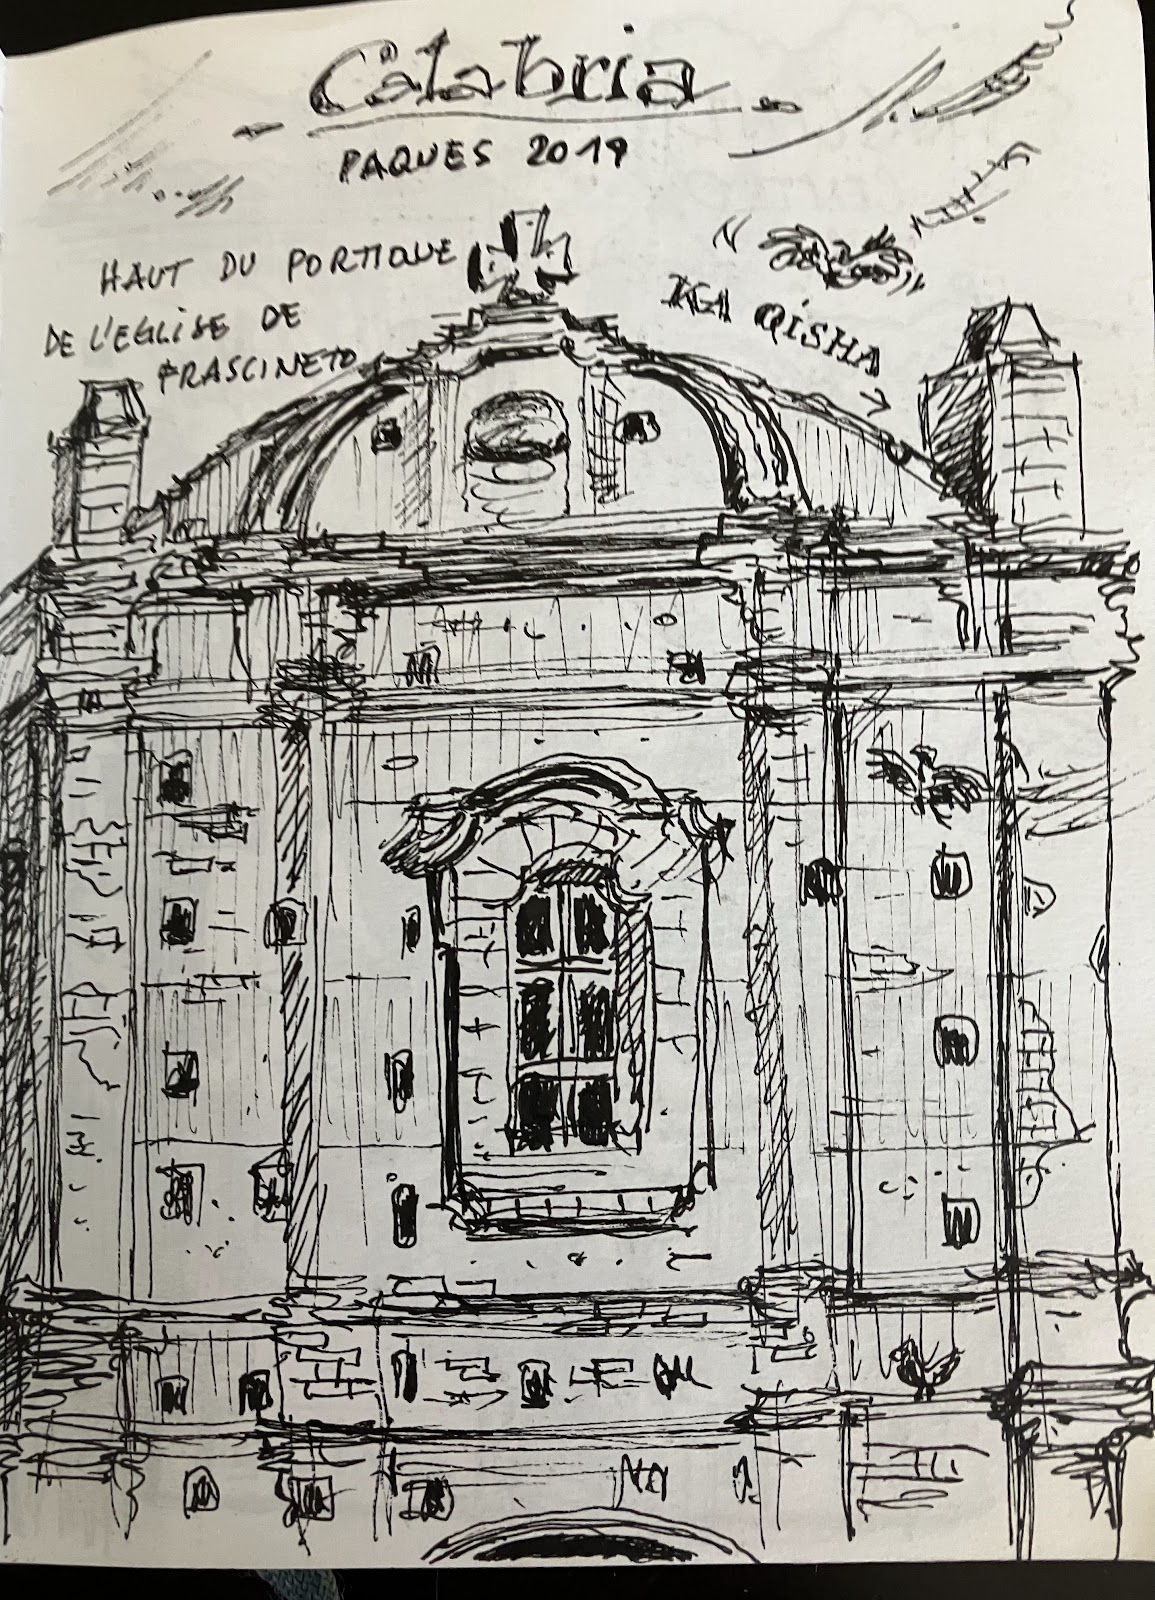 Calabria
PAQUES 2019
HAUT DU PORTIQUE
DE L'EGLISE DE
FRASCINETO
KA QISHA